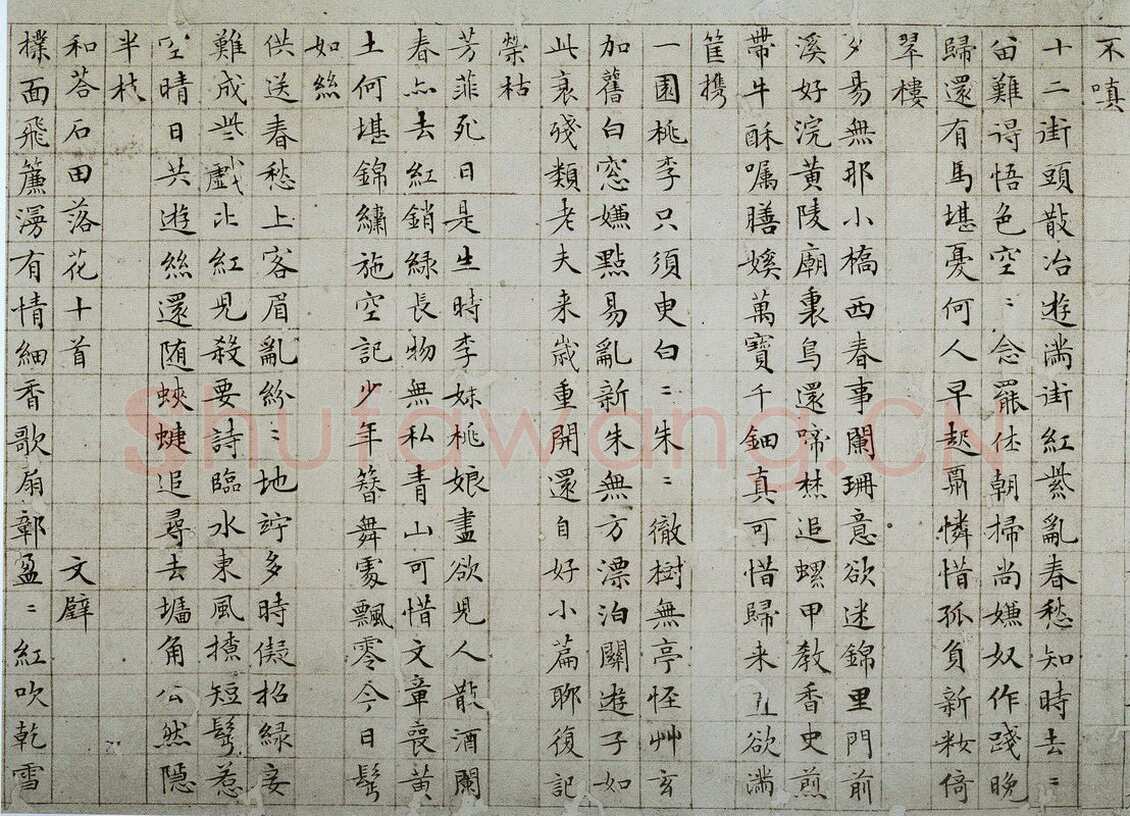 不嗔
十二街頭散冶遊滿街紅紫亂春愁知時去〻
畄難得悟色空〻念罷仕朝掃尚嫌奴作踐晚
歸還有馬堪憂何人早起憐惜孤負新妝倚
翠樓
夕易無耶小橋西春事闌珊意欲迷錦里門前
溪好浣黄陵廟裏鳥還啼焚追螺甲教香史煎
帶牛酥嘱膳媐萬寶千鈿真可惜歸来直欲滿
筐携
一園桃李只須臾白〻朱〻徹樹無亭怪艸玄
加舊白窓嫌點易亂新朱無方漂泊關遊子如
此衰殘類老夫来歳重開還自好小篇聊復記
榮枯
芳菲死日是生時李妹桃娘盡欲兒人散酒闌
春亦去紅銷緑長物無私青山可惜文章喪黄
土何堪錦繡施空記少年簪舞處飄零今日鬢
如絲
供送春愁上客眉亂紛〻地竚多時儗招緑妾
難成些戲比紅兒殺要詩臨水東風撩短鬢惹
空晴日共遊絲還随蛺蝶追尋去墻角公然隱
半枝
和荅石田落花十首 文壁
撲面飛簾漫有情細香歌扇鄣盈〻紅吹乾雪
Shufawang.CN